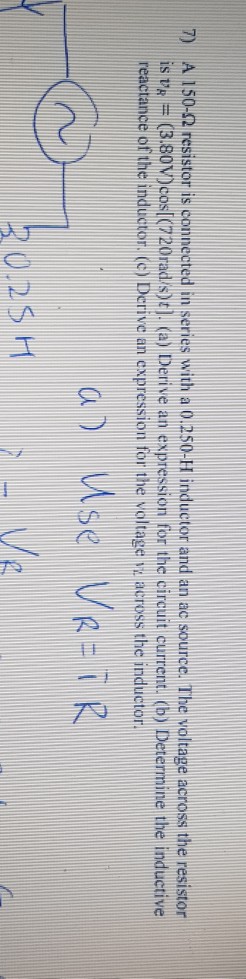 7) A 150-Ω resistor is connected in series with a 0.250-H inductor and an ac source. The voltage across the resistor
is vR = (3.80V)cos[(720rad/s)t]. (a) Derive an expression for the circuit current. (b) Determine the inductive
reactance of the inductor. (c) Derive an expression for the voltage vL across the inductor.
a) Use VR = iR
0.25H
i = VR